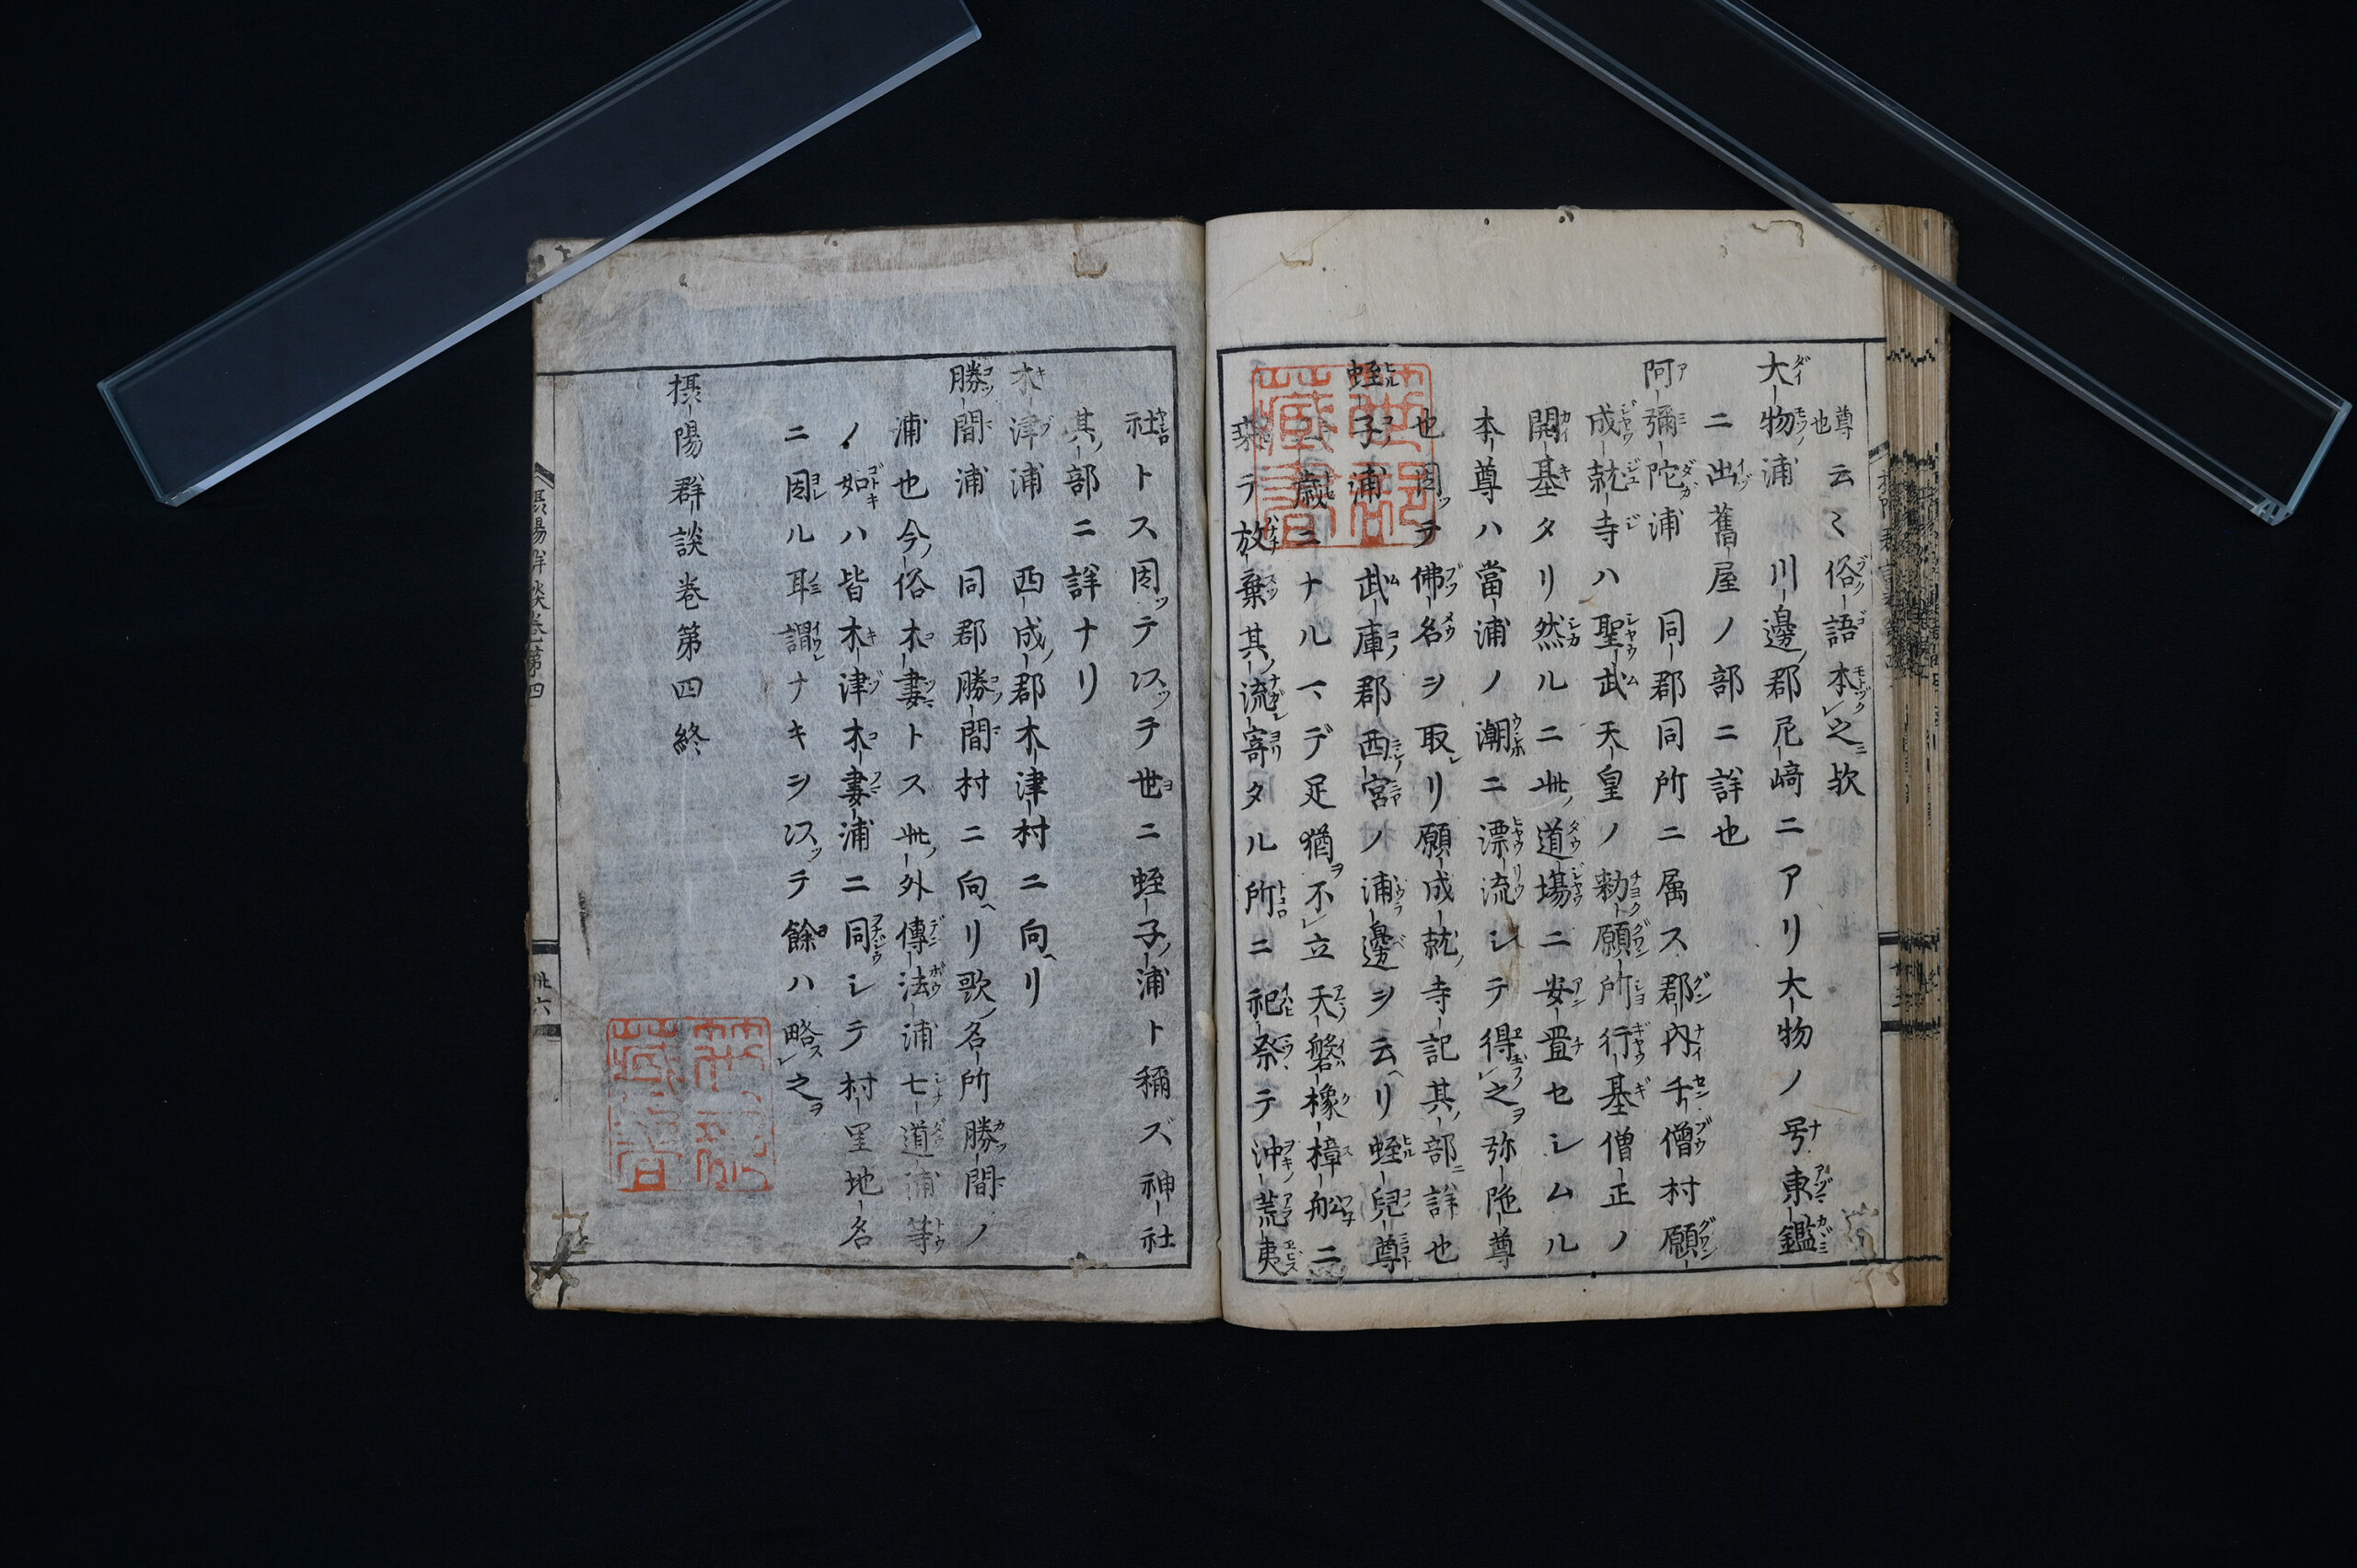 尊也云々俗語本之欤
大物浦　川邊郡尼﨑ニアリ大物ノ号東鑑
ニ出舊屋ノ部ニ詳也
阿彌陀浦　同郡同所ニ属ス郡内千僧村願
成就寺ハ聖武天皇ノ勅願所行基僧正ノ
開基タリ然ルニ此道場ニ安置セシムル
本尊ハ當浦ノ潮ニ漂流シテ得之弥陀尊
也因テ佛名ヲ取リ願成就寺記其部詳也
蛭子浦　武庫郡西宮ノ浦邊ヲ云リ蛭兒尊
歳ニナルマデ足猶不立天磐櫲樟船ニ
テ放棄其流寄タル所ニ祀祭テ沖荒夷
社トス因テ以テ世ニ蛭子浦ト稱ズ神社
其部ニ詳ナリ
木津浦　西成郡木津村ニ向リ
勝間浦　同郡勝間村ニ向リ歌名所勝間ノ
浦也今俗木妻トス此外傳法浦七道浦等
ノ如ハ皆木津木妻浦ニ同シテ村里地名
ニ因ル耳謂ナキヲ以テ餘ハ略之
摂陽群談卷第四終
摂陽群談卷第四
卅六